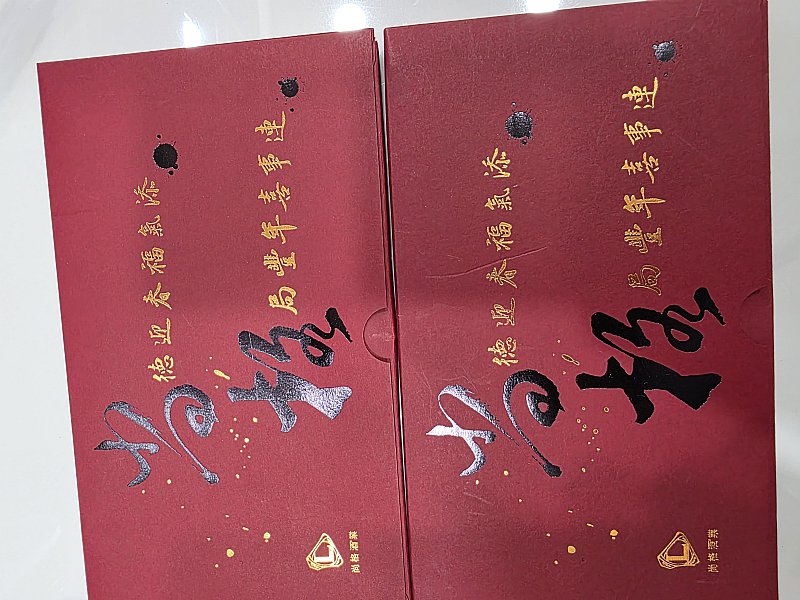 尚德迎春福氣添
格局豐年喜事連
L
尚格酒業
尚德迎春福氣添
格局豐年喜事連
L
尚格酒業